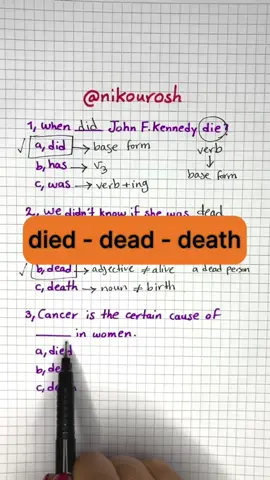 @nikourosh
1, when did John F. Kennedy die?
√ a, did → base form
verb
↓
base form
b, has → √3
c, was → verb + ing
2, we didn't know if she was dead
died - dead - death
b, dead → adjective ≠ alive a dead person
c, death → noun ≠ birth
3, Cancer is the certain cause of
______ in women.
a, died